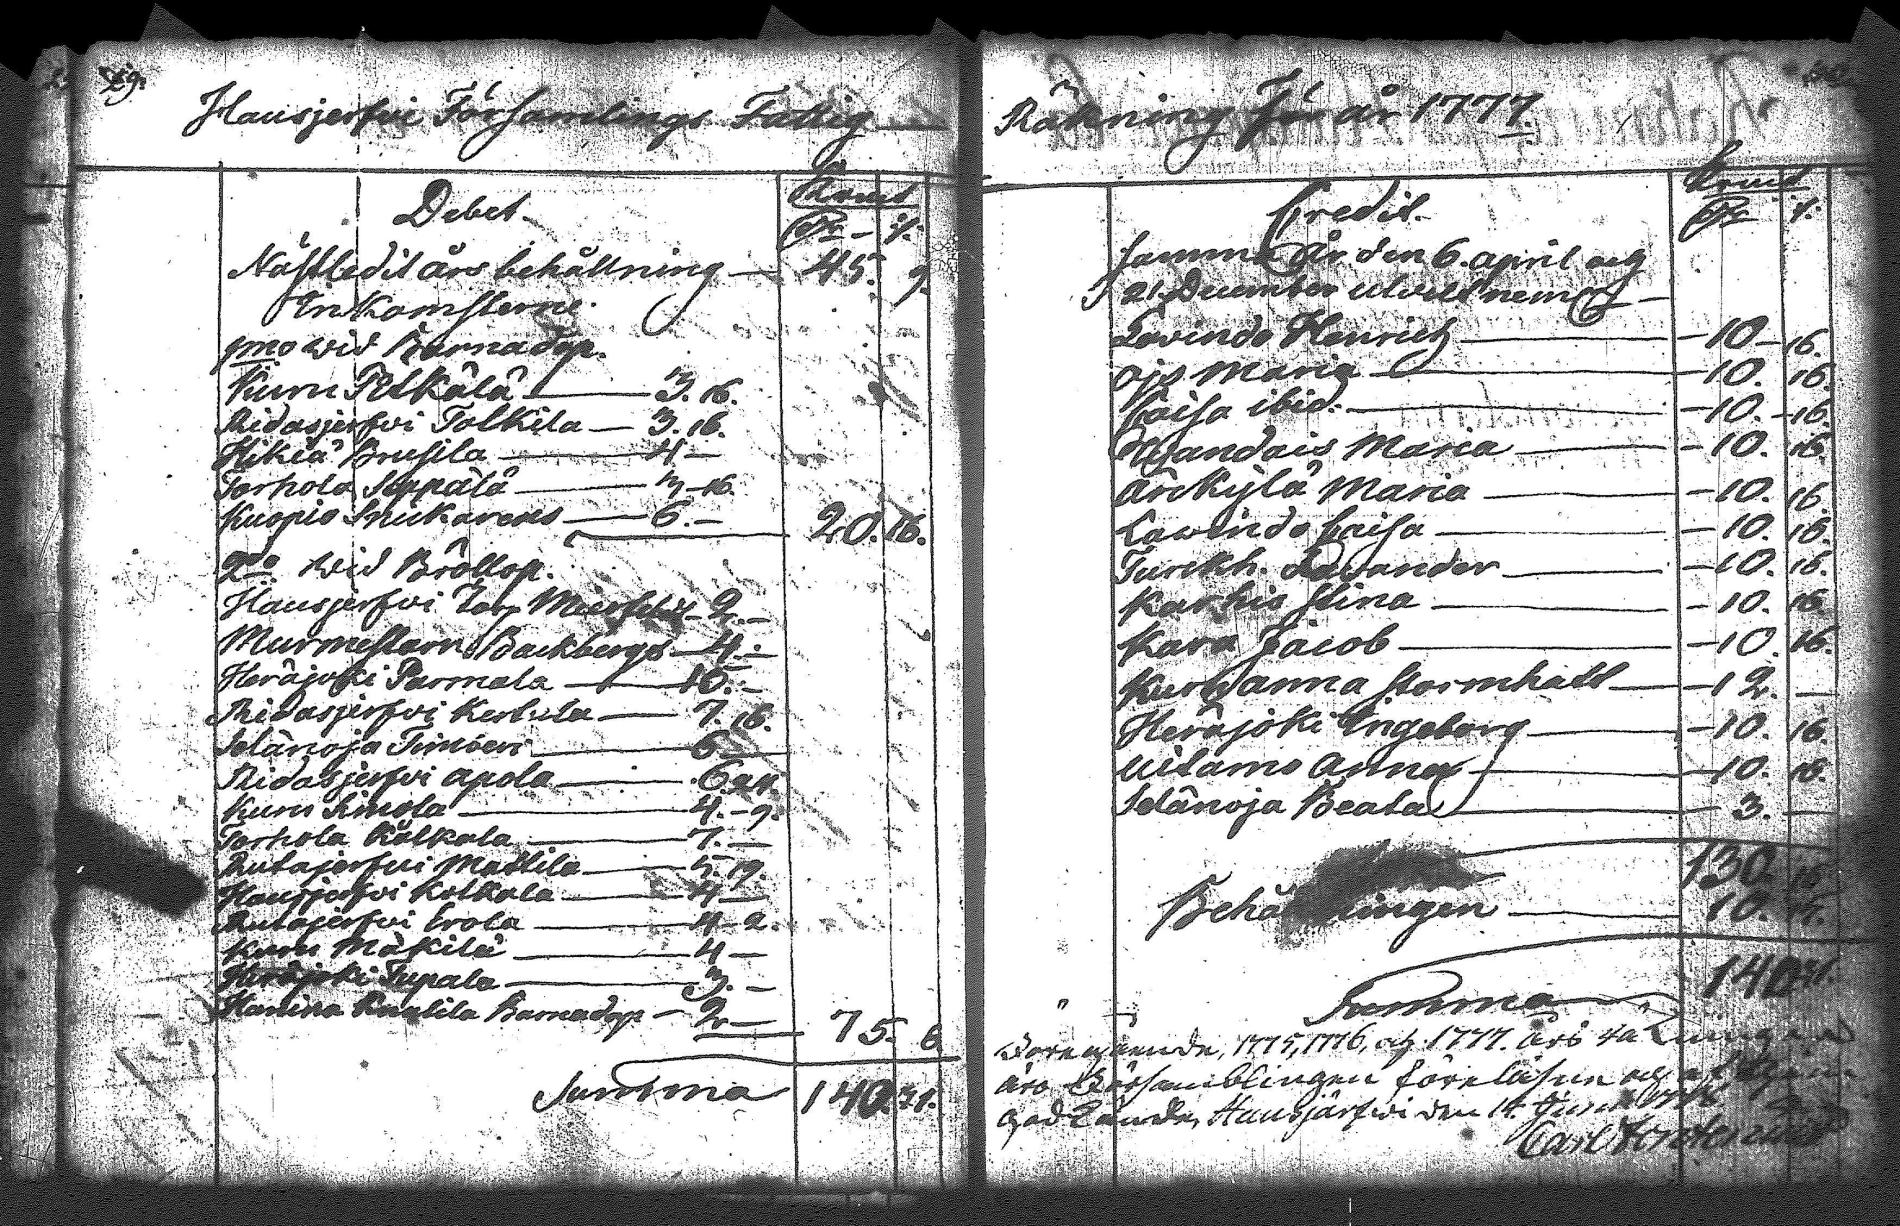 29.
Hausjerfvi Församlings Fattig
Debet.
Näst ledit års behållning — 45. 9.
Inkomsterne.
1mo wid Barnadop.
Kuru Pelkälä — 3. 16.
Ridasjerfvi Tolkila — 3. 16.
Hikiä Brusila — 4 —
Torhola Seppälä — 3 — 16.
Kuopio Snickarens — 6. — 20. 16.
2do wid Bröllop.
Hausjerfvi Torp — 2. —
Murmestarn Backbergs — 4. —
Heräjoki Parmala — 15. —
Ridasjerfvi Kertula — 7. 16.
Selänoja Timoeri — 6
Ridasjerfvi Apola — 6. 24.
Kuru Simola — 4. — 9.
Torhola Kålkala — 7. —
Rutajerfvi Mattila — 5. 19.
Hausjerfvi Kolkala — 4 —
Rutajerfvi Erola — 4 — 2.
Kuru Mäkilä — 4 —
Heräjoki Tupala — 3. —
Barnadop — 2 — 75. 6.
Summa 140. 31.
Räkning För år 1777.
Credit.
Samma År den 6. april och
21 December utdelt nemel. —
Lavindo Henrich — 10 — 16.
Ojs Maria — 10. 16.
Caisa ibid. — 10. — 16.
Maria — 10. 16.
Årikylä Maria — 10. 16
Lawindo Caisa — 10. 16.
Turckh. — 10. 16.
Karhis Stina — 10. 16.
Kara Jacob — 10. 16.
Kuru Anna Stormhatt — 12. —
Heräjoki Ingeborg — 10. 16.
Uitamo Anna — 10. 16.
Selänoja Beata — 3. —
130. 16
Behållningen — 10. 15.
Summa 140. 31.
Föregående, 1775, 1776, och 1777. års
äro Församblingen föreläsne och
godkände, Hausjärfwi den 14 Junii
Carl